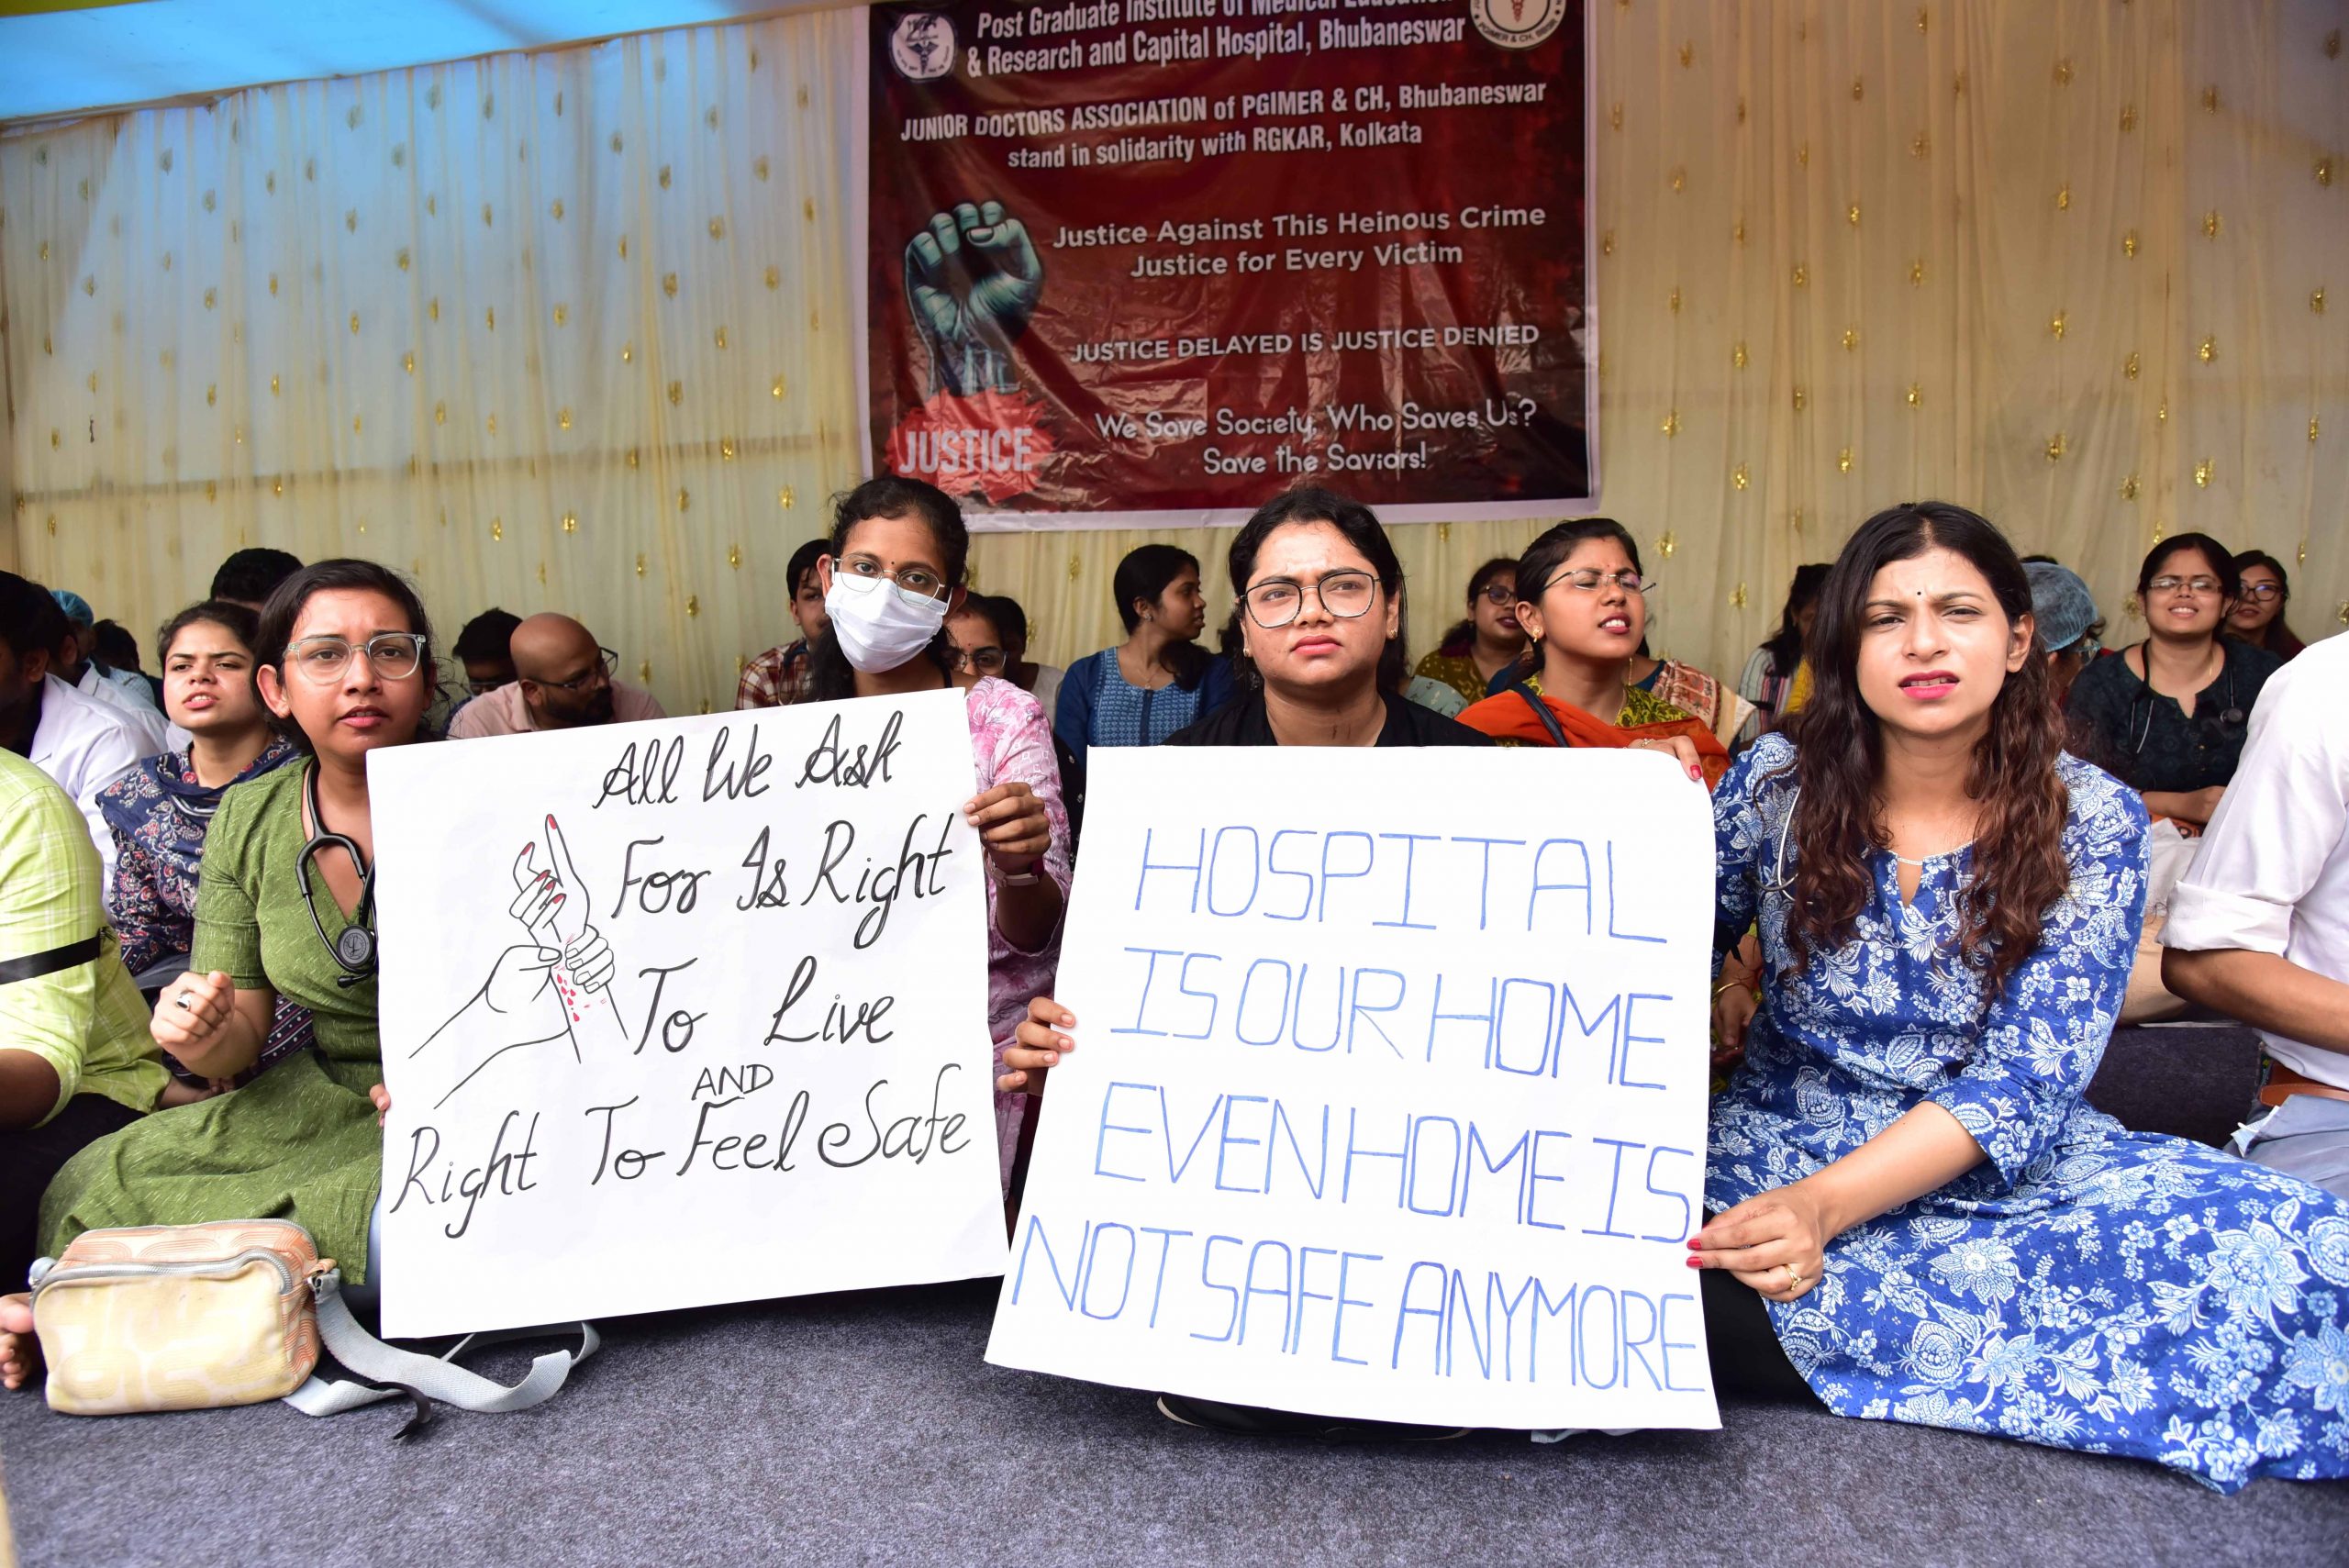 Post Graduate Institute of Medical Education
& Research and Capital Hospital, Bhubaneswar
JUNIOR DOCTORS ASSOCIATION of PGIMER & CH, Bhubaneswar
stand in solidarity with RGKAR, Kolkata
Justice Against This Heinous Crime
Justice for Every Victim
JUSTICE DELAYED IS JUSTICE DENIED
JUSTICE
We Save Society, Who Saves Us?
Save the Saviors!
All We Ask
For Is Right
To Live
AND
Right To Feel Safe
HOSPITAL
IS OUR HOME
EVEN HOME IS
NOT SAFE ANYMORE